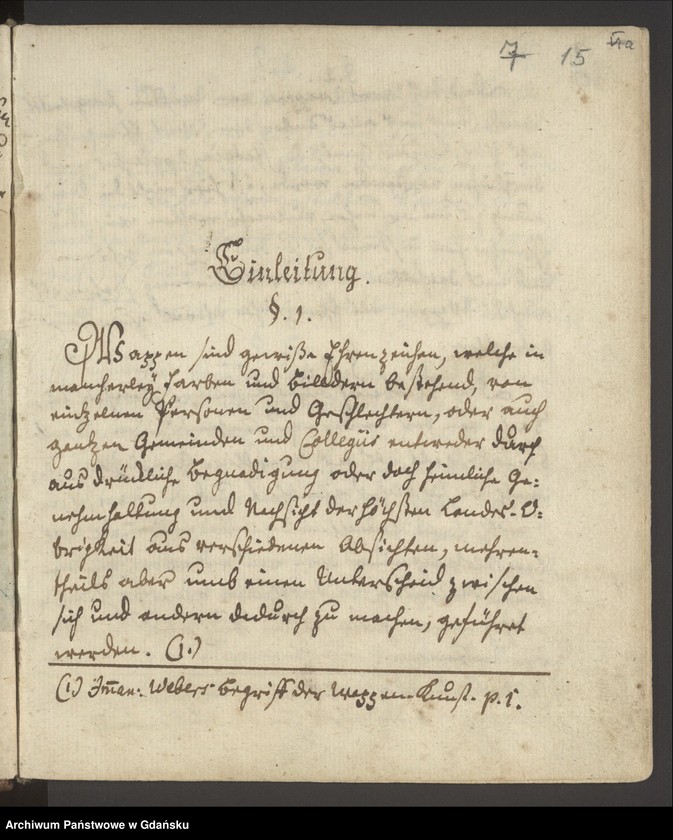 7 15 VIa
Einleitung.
§. 1.
Wappen sind gewiße Ehrenzeichen, welche in
mancherley Farben und Bilddern bestehend, von
eintzelnen Personen und Geschlechtern, oder auch
gantzen Gemeinden und Collegiis entweder durch
ausdrückliche Begnadigung oder doch heimliche Ge-
nehmhaltung und Nachsicht der höchsten Landes-O-
brigkeit aus verschiedenen Absichten, mehren-
theils aber umb einen Unterscheid zwischen
sich und andern dadurch zu machen, geführet
werden. (1.)
(1) Iman: Webers Begriff der Wappen-Kunst. p. 1.
Archiwum Państwowe w Gdańsku